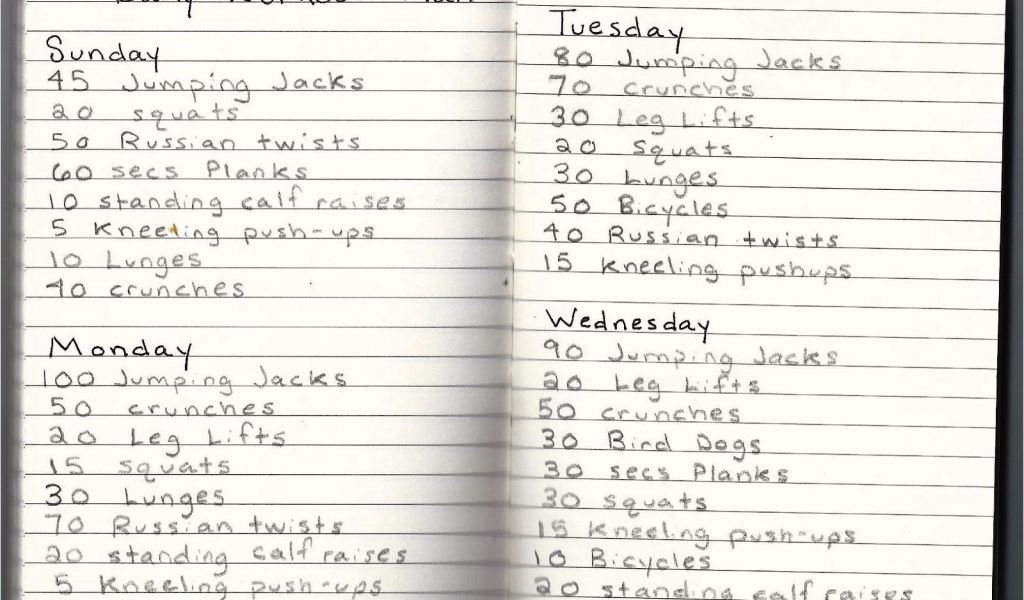 Sunday
45 Jumping Jacks
20 squats
50 Russian twists
60 secs Planks
10 standing calf raises
5 Kneeling push-ups
10 Lunges
40 crunches
Monday
100 Jumping Jacks
50 crunches
20 Leg Lifts
15 squats
30 Lunges
70 Russian twists
20 standing calf raises
5 Kneeling push-ups
Tuesday
80 Jumping Jacks
70 crunches
30 Leg Lifts
20 Squats
30 Lunges
50 Bicycles
40 Russian twists
15 Kneeling pushups
Wednesday
90 Jumping Jacks
20 Leg Lifts
50 crunches
30 Bird Dogs
30 secs Planks
30 squats
15 Kneeling push-ups
10 Bicycles
20 standing calf raises